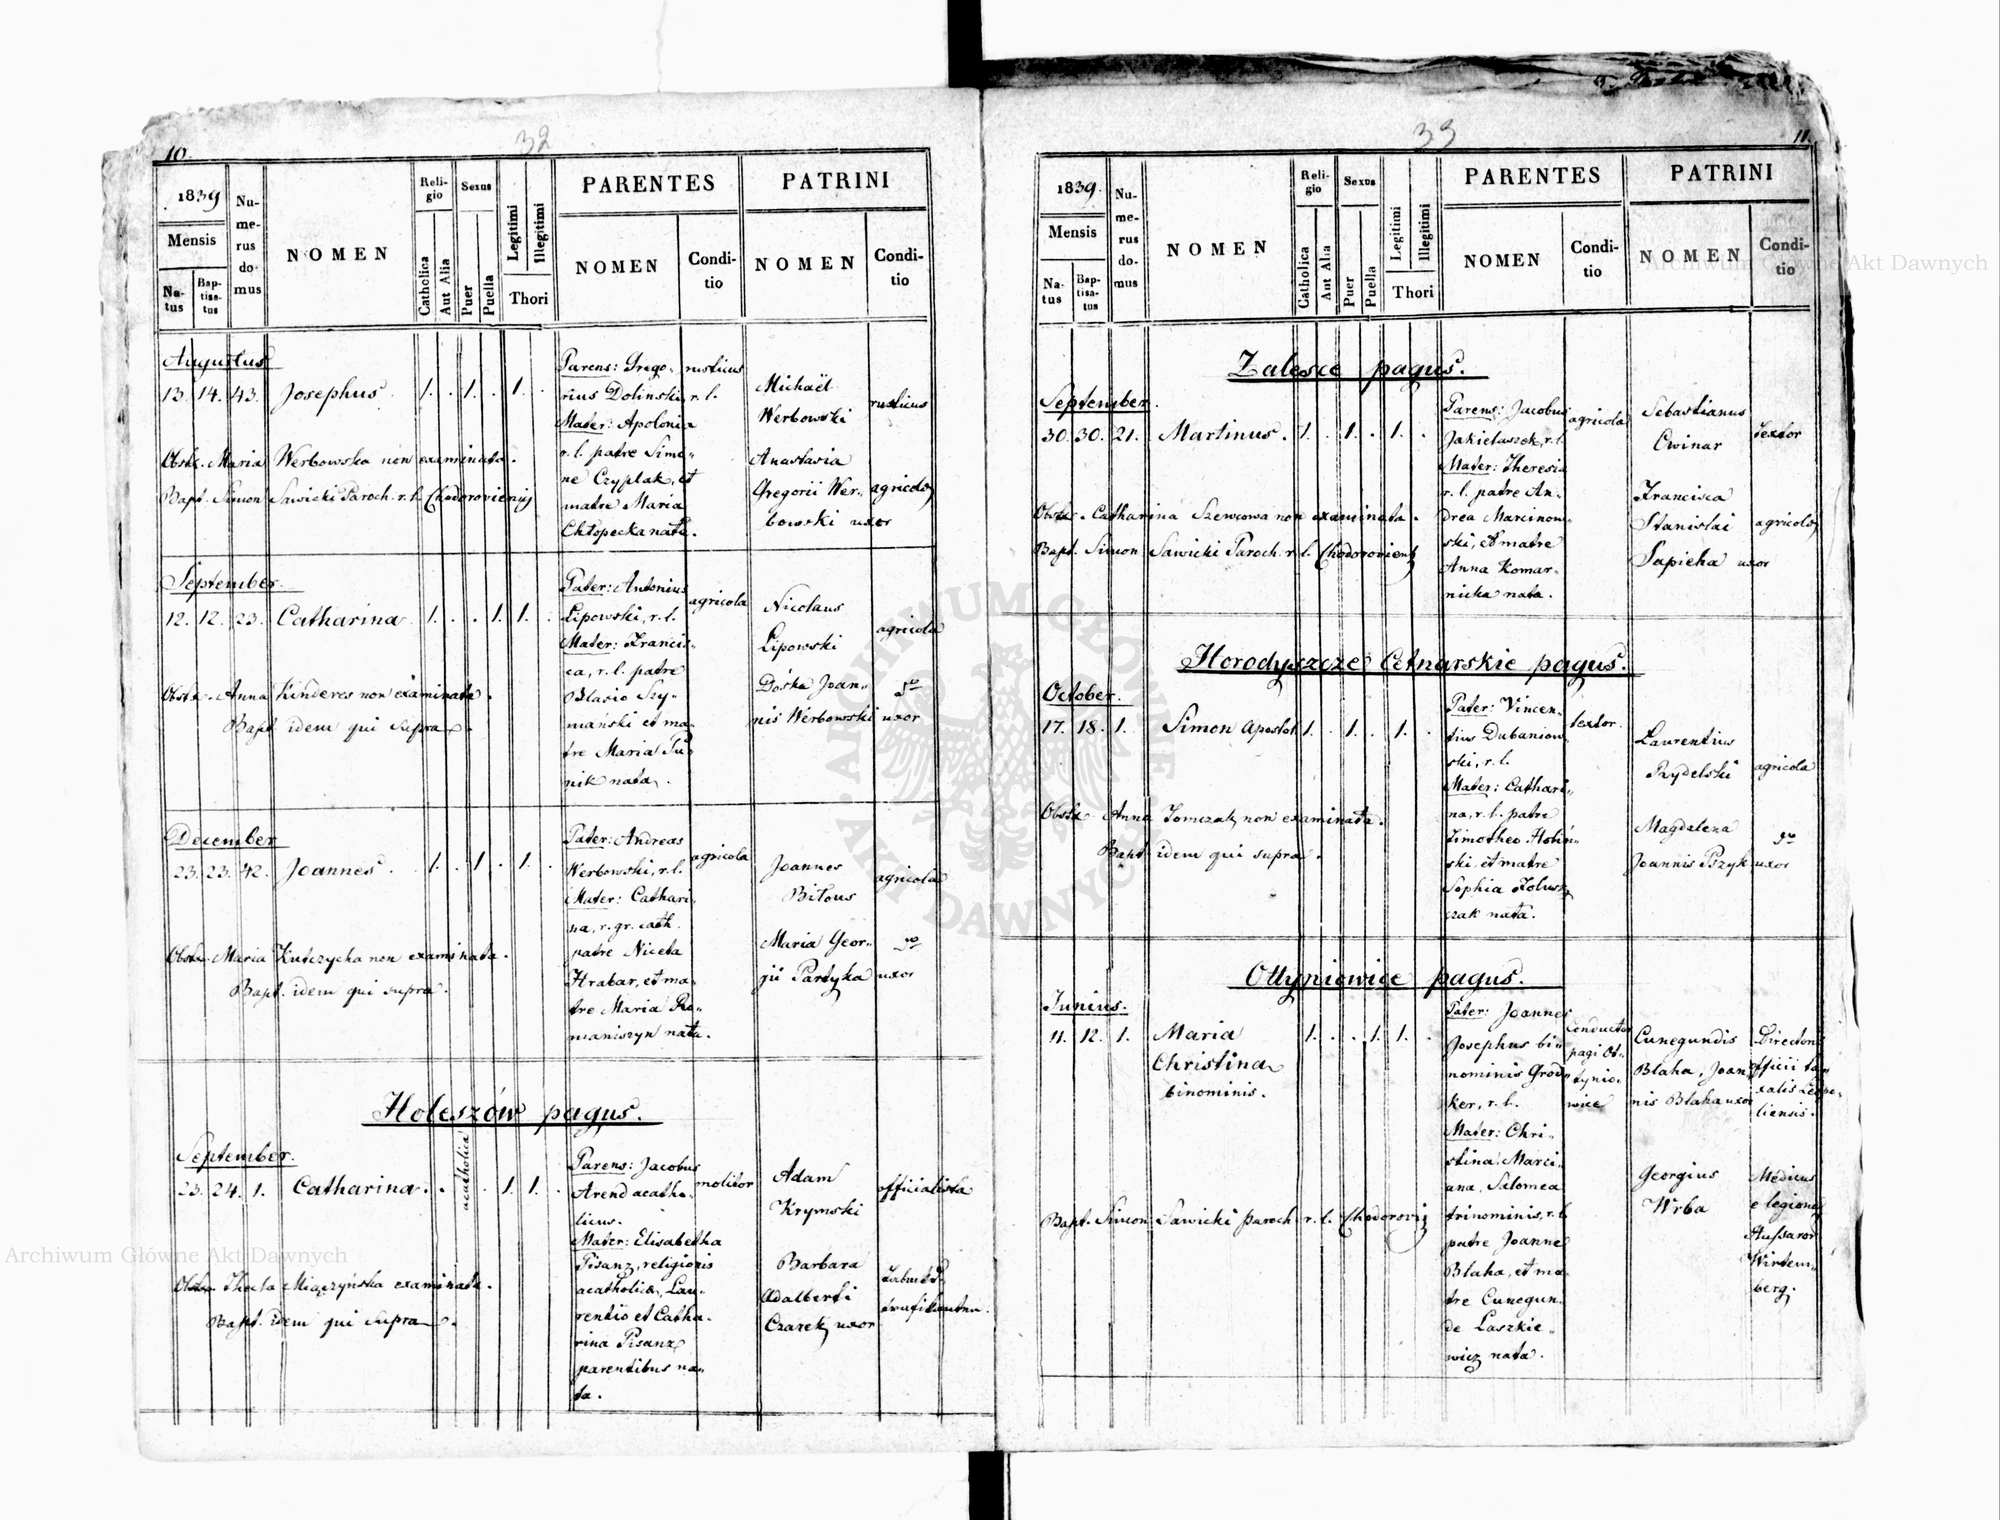 32
10.
1839
Mensis
Na-
tus
Bap-
tisa-
tus
Nu-
me-
rus
do-
mus
NOMEN
Reli-
gio
Catholica
Aut Alia
Sexus
Puer
Puella
Legitimi
Illegitimi
Thori
PARENTES
NOMEN
Condi-
tio
PATRINI
NOMEN
Condi-
tio
Augustus
13. 14. 43. Josephus. 1. . 1. . 1. .
Parens: Grego-
rius Dolinski, r. l.
Mater: Apolonia
r. l. patre Simo-
ne Czyplak, et
matre Maria
Chłopecka nata.
rusticus
Michaël
Werbowski
rusticus
Anastasia
Gregorii Wer-
bowski uxor
agricolæ
Obste. Maria Werbowska non examinata.
Bapt. Simon Sawicki Paroch. r. l. Chodoroviensis
September.
12. 12. 23. Catharina. 1. . . 1. 1. .
Pater: Antonius
Lipowski, r. l.
Mater: Francis-
ca, r. l. patre
Blasio Szy-
mański et ma-
tre Maria Pu-
nik nata.
agricola
Nicolaus
Lipowski
agricola
Dośka Joan-
nis Werbowski uxor
Obste. Anna Kinderes non examinata.
Bapt. idem qui supra.
December
23. 23. 42. Joannes. 1. . 1. . 1. .
Pater: Andreas
Werbowski, r. l.
Mater: Cathari-
na, r. gr. cath.
patre Niceta
Hrabar, et ma-
tre Maria Ro-
maniszyn nata.
agricola
Joannes
Bitous
agricola
Maria Geor-
gii Partyka uxor
Obste. Maria Kulczycka non examinata.
Bapt. idem qui supra.
Holeszów pagus.
September.
23. 24. 1. Catharina. . acatholica . 1. 1. .
Parens: Jacobus
Arend acatho-
licus.
Mater: Elisabetha
Pisanz, religionis
acatholica, Lau-
rentio et Catha-
rina Pisanz
parentibus na-
ta.
molitor
Adam
Krymski
officialista
Barbara
Adalberti
Czarek uxor
Obste. Thecla Miączyńska examinata.
Bapt. idem qui supra.
33
11.
1839.
Mensis
Na-
tus
Bap-
tisa-
tus
Nu-
me-
rus
do-
mus
NOMEN
Reli-
gio
Catholica
Aut Alia
Sexus
Puer
Puella
Legitimi
Illegitimi
Thori
PARENTES
NOMEN
Condi-
tio
PATRINI
NOMEN
Condi-
tio
Zalesce pagus.
September.
30. 30. 21. Martinus. 1. . 1. . 1. .
Parens: Jacobus
Jakietaszek, r. l.
Mater: Theresia
r. l. patre An-
drea Marcinow-
ski, et matre
Anna Komar-
nicka nata.
agricola
Sebastianus
Cwinar
textor
Francisca
Stanislai
Sapieha uxor
agricolæ
Obste. Catharina Szewcowa non examinata.
Bapt. Simon Sawicki Paroch. r. l. Chodoroviensis
Horodyszcze Cetnarskie pagus.
October.
17. 18. 1. Simon Apostol. 1. . 1. . 1. .
Pater: Vincen-
tius Dubaniow-
ski, r. l.
Mater: Cathari-
na, r. l. patre
Timotheo Hołiń-
ski, et matre
Sophia Kolusz-
czak nata.
textor.
Laurentius
Rydelski
agricola
Magdalena
Joannis Pszyk uxor
Obste. Anna Tomczak non examinata.
Bapt. idem qui supra.
Ottyniowice pagus.
Junius.
11. 12. 1. Maria
Christina
binominis.
1. . . 1. 1. .
Pater: Joannes
Josephus bi-
nominis Grod-
ker, r. l.
Mater: Chri-
stina Marci-
ana, Salomea
trinominis, r. l.
patre Joanne
Blaha, et ma-
tre Cunegun-
de Laszkie-
wicz nata.
Conductor
pagi Ot-
tynio-
wice
Cunegundis
Blaha, Joan-
nis Blaha uxor
Directoris
officii ta-
xalis Leopo-
liensis.
Georgius
Wrba
Medicus
e legione
Hussaror
Wirtem-
berg.
Bapt. Simon Sawicki Paroch r. l. Chodorovien
Archiwum Główne Akt Dawnych
Archiwum Główne Akt Dawnych
ARCHIWUM GŁÓWNE AKT DAWNYCH